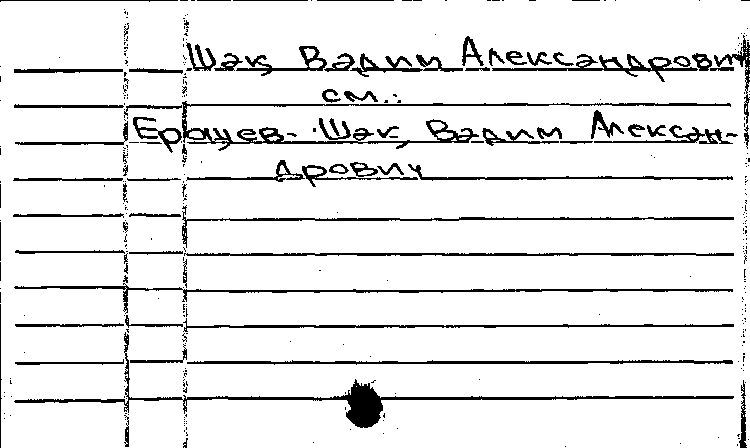 Шак, Вадим Александрович
см.:
Ерашев-Шак, Вадим Алексан-
дрович